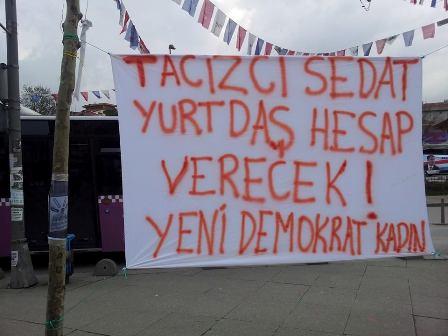 TACIZCI SEDAT
YURTDAŞ HESAP
VEREÇEK!
YENİ DEMOKRAT KADIN